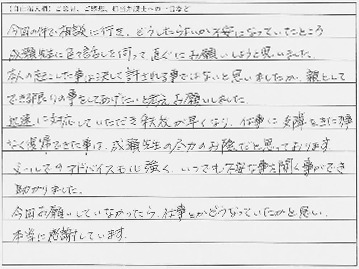 【自由記入欄】ご意見、ご感想、担当弁護士への一言など
今回の件で相談に行き、どうしたらいいか不安になっていたところ
成瀬先生に色々話しを伺って直ぐにお願いしようと思いました。
本人の起こした事は決して許される事ではないと思いましたが、親として
でき限りの事をしてあげたいと考えお願いしました。
迅速に対応していただき釈放が早くなり、仕事に支障をきたす事
なく復帰できた事は、成瀬先生の尽力のお陰だと思っております
メールでのアドバイスも心強く、いつでも不安な事を聞く事ができ
助かりました。
今回お願いしていなかったら、仕事とかどうなっていたかと思い、
本当に感謝しています。